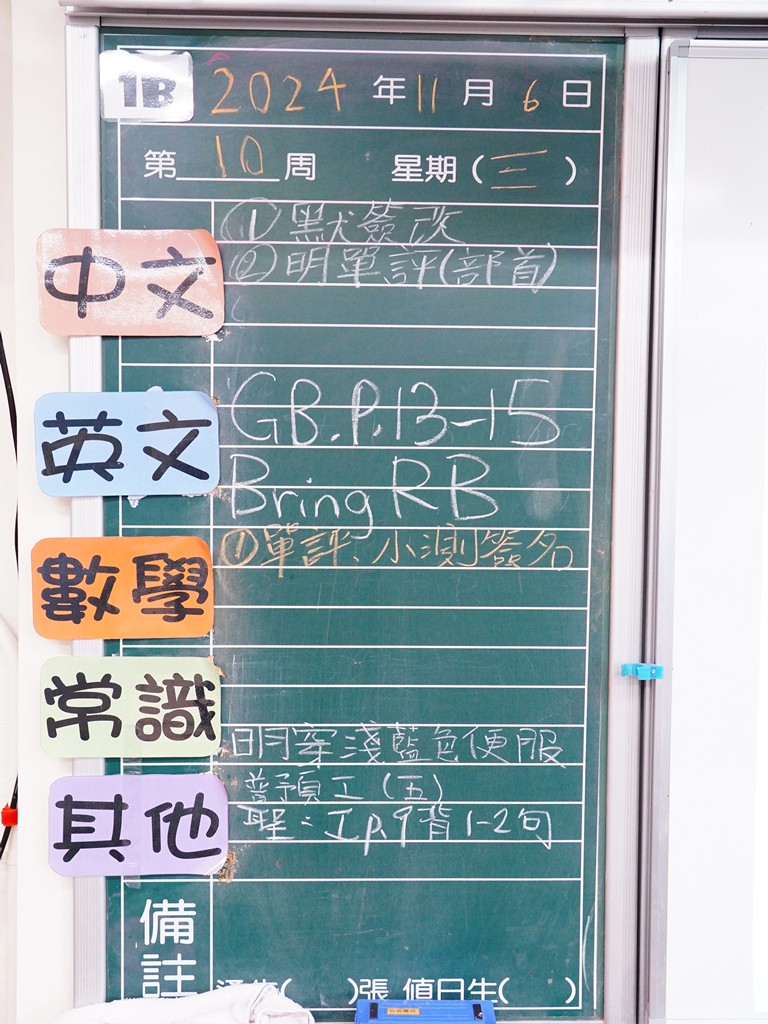 1B 2024 年 11 月 6 日
第 10 周 星期 (三)
中文
① 默簽改
② 明單評(部首)
英文
GB.P.13-15
Bring RB
數學
① 單評、小測簽名
常識
明穿淺藍色便服
其他
普預工(五)
聖: 工p.9背1-2句
備註
張 值日生( )